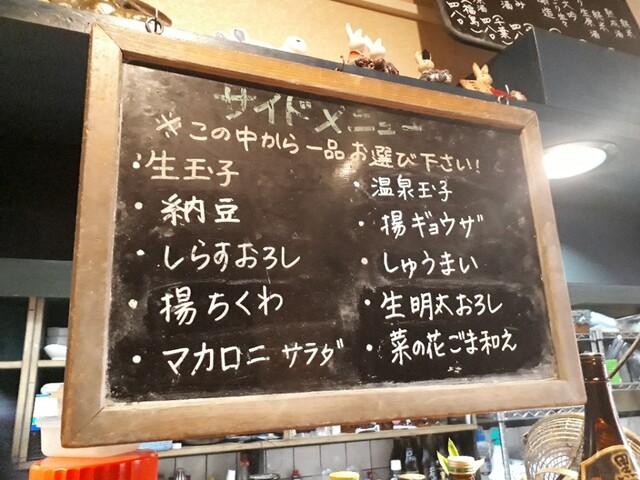 サイドメニュー
※この中から一品お選び下さい!
・生玉子
・納豆
・しらすおろし
・揚ちくわ
・マカロニサラダ
・温泉玉子
・揚ギョウザ
・しゅうまい
・生明太おろし
・菜の花ごま和え